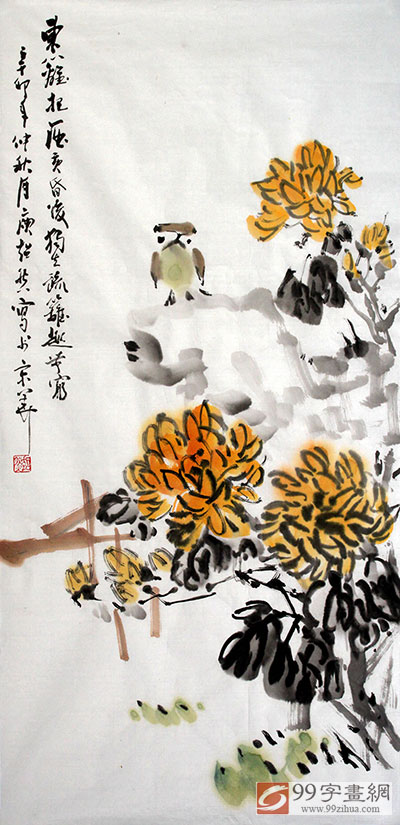 東籬把酒黃昏後獨坐疏籬趣無窮
辛卯年仲秋月康超然寫於京華
99字畫網
www.99zihua.com